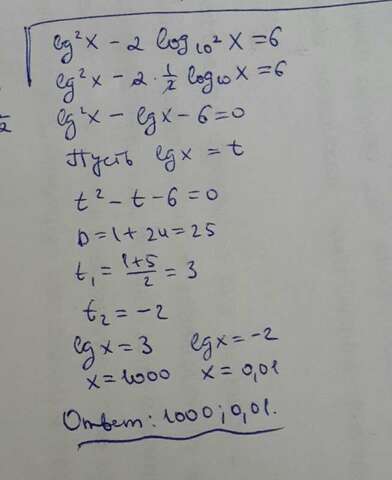 lg²x - 2 log₁₀² x = 6
lg²x - 2 · 1/2 log₁₀ x = 6
lg²x - lgx - 6 = 0
Пусть lgx = t
t² - t - 6 = 0
D = 1 + 24 = 25
t₁ = (1+5)/2 = 3
t₂ = -2
lgx = 3 lgx = -2
x = 1000 x = 0,01
Ответ: 1000; 0,01.